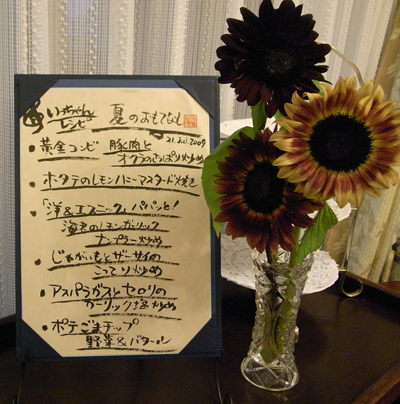 いっちゃんレシピ 夏のおもてなし
21. Jul. 2009
・黄金コンビ 豚肉と
オクラのさっぱり炒め
・ホタテのレモンハニーマスタード焼き
・「洋&エスニック」パパッと!
海老のレモンガーリック
ナンプラー炒め
・じゃがいもとザーサイの
こってり炒め
・アスパラガスとセロリの
ガーリック塩炒め
・ポテごまチップ
野菜&バタール